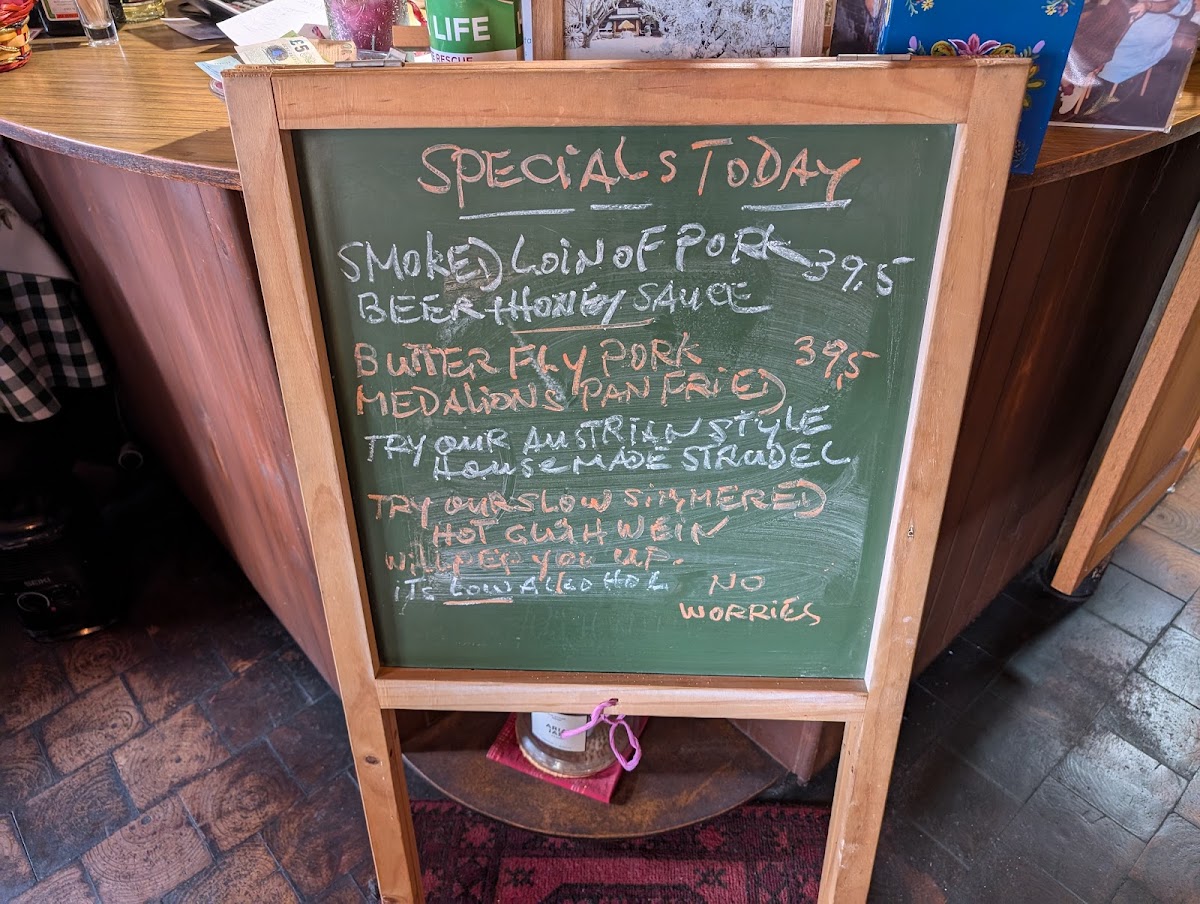 £5
LIFE
& RESCUE
SPECiALS TODAY
SMOKED LOiN OF PORK 39,5
BEER + HONEY SAUCE
BUTTERFLY PORK 39,5
MEDALiONS PAN FRiED
TRY OUR AUSTRiAN STYLE
HOUSEMADE STRUDEL
TRY OUR SLOW SiMMERED
HOT GLÜH WEiN
WiLL PEP YOU UP.
iTS LOW ALCOHOL NO
WORRiES
SEIKI